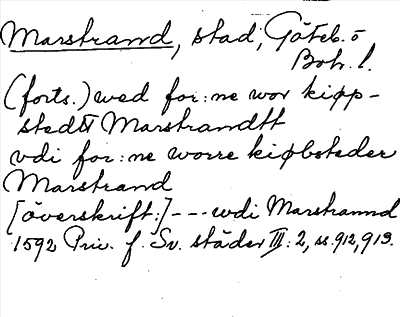 Marstrand, stad, Göteb. o
Boh. l.
(forts.) wed for:ne wor kiøp-
stedtt Marstrandtt
vdi for:ne worre kiøbsteder
Marstrand
[överskrift:] --- wdi Marstrannd
1592 Priv. f. Sv. städer III: 2, ss. 912, 913.